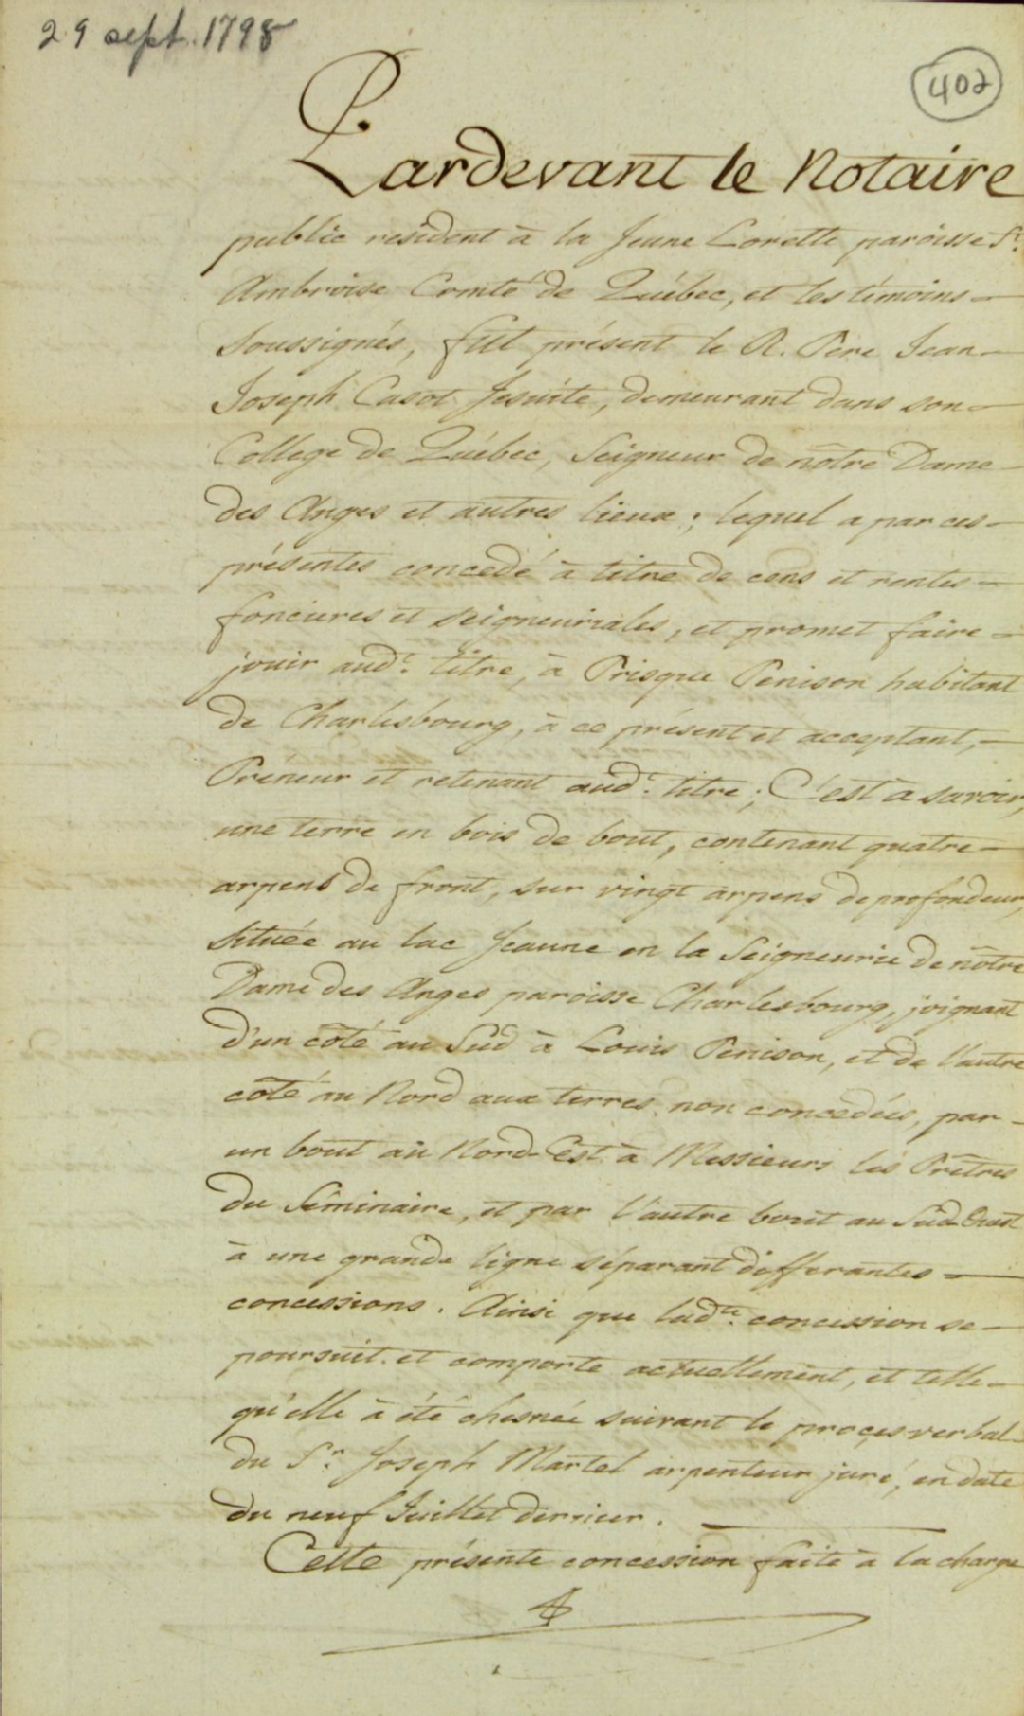 29 sept. 1798
402
Pardevant le Notaire
public resident à la Jeune Lorette paroisse St.
Ambroise Comté de Québec, et les témoins
soussignés, fut présent le R. Père Jean
Joseph Casot Jesuite, demeurant dans son
College de Québec, Seigneur de nôtre Dame
des Anges et autres lieux; lequel a par ces
présentes concedé à titre de cens et rentes
foncieres et seigneuriales, et promet faire
jouir audt. titre, à Prisque Penison habitant
de Charlesbourg, à ce présent et acceptant,
Préneur et retenant audt. titre; C'est à savoir,
une terre en bois de bout, contenant quatre
arpens de front, sur vingt arpens de profondeur,
située au lac Jeaune en la Seigneurie de nôtre
Dame des Anges paroisse Charlesbourg, joignant
d'un côté au Sud à Louis Penison, et de l'autre
côté au Nord aux terres non concedées, par
un bout au Nord-Est à Messieurs les Prêtres
du Séminaire, et par l'autre bout au Sud Ouest
à une grande ligne séparant differantes
concessions. Ainsi que ladte. concession se
poursuit et comporte actuellement, et telle
qu'elle à été chesnée suivant le proçes verbal
du Sr. Joseph Martel arpenteur juré, en date
du neuf Juillet dernier.
Cette présente concession faite à la charge